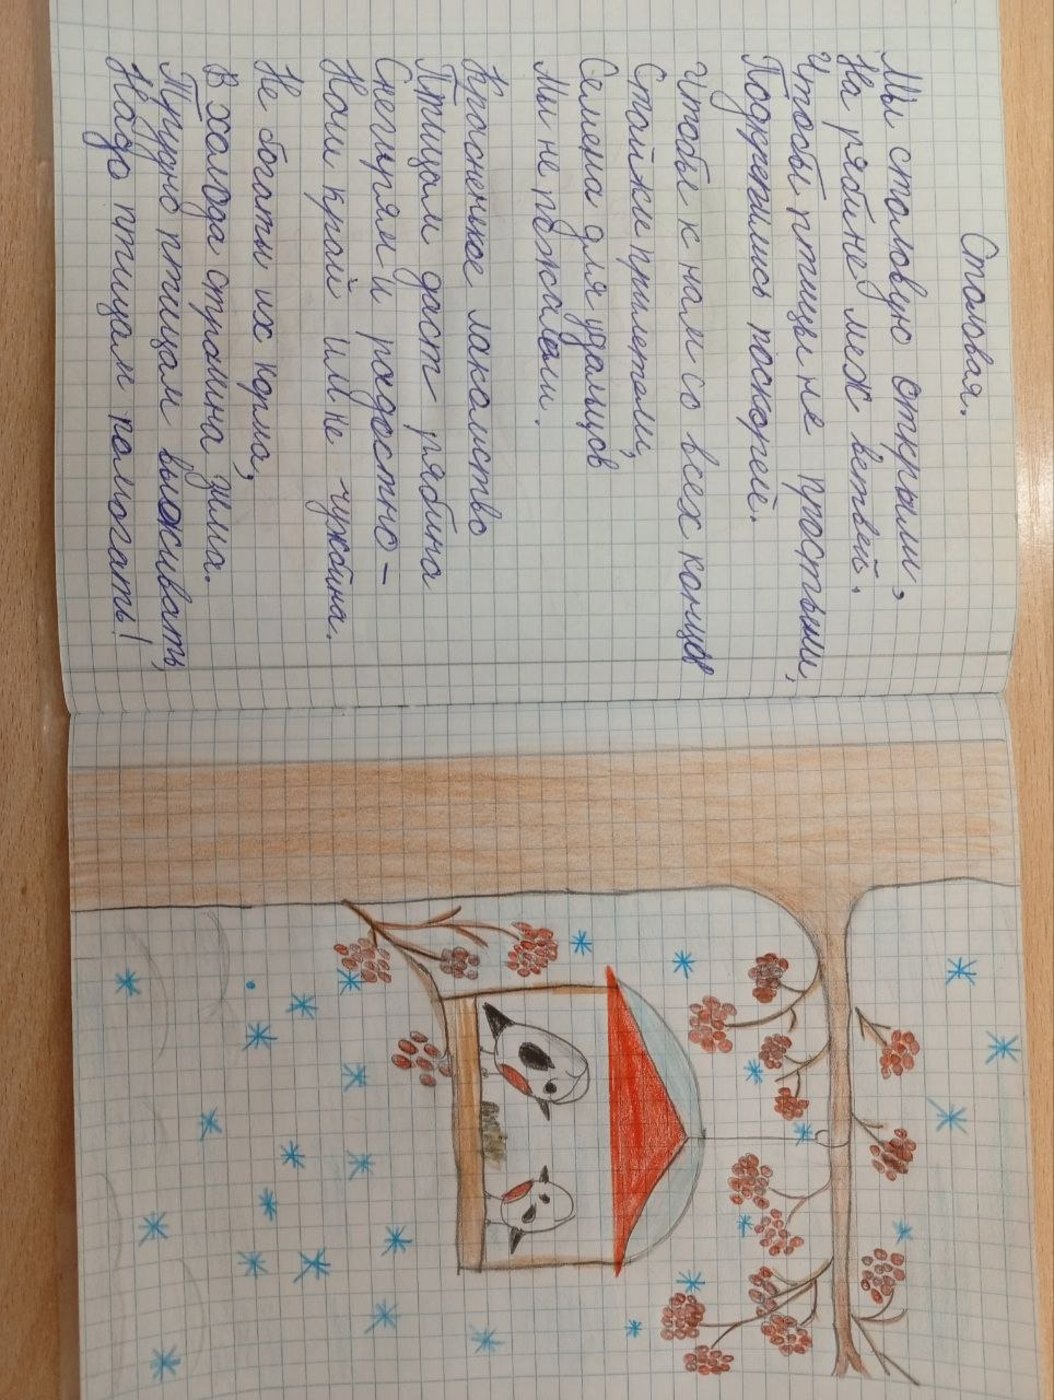 Столовая.
Мы столовую открыли,
На рябине меж ветвей.
Чтобы птицы не простыли,
Подкрепились поскорей.
Чтобы к нам со всех концов
Стайки прилетели,
Семена для удальцов
Мы не пожалели.
Красненькое лакомство
Птицам даст рябина
Снегирям и радостно -
Наш край им не чужбина.
Не богаты их корма,
В холода страшна зима.
Трудно птицам выживать,
Надо птицам помогать!